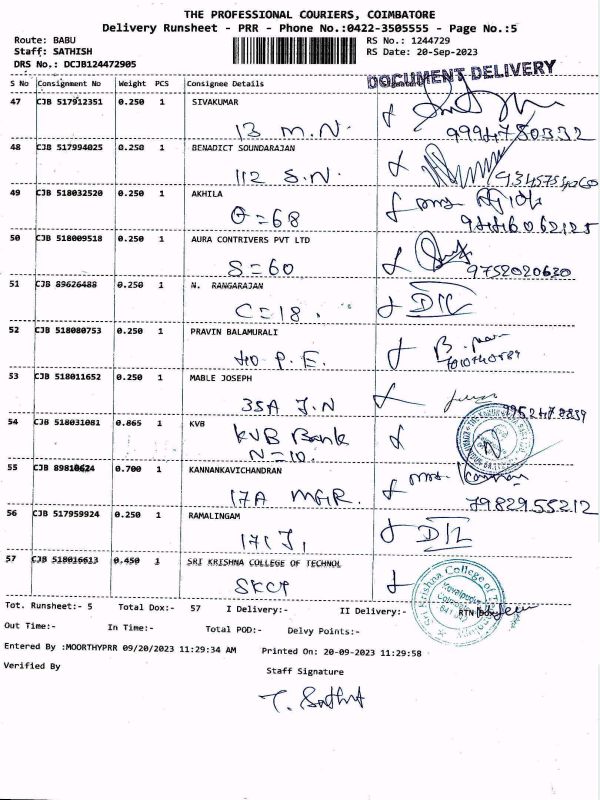 THE PROFESSIONAL COURIERS, COIMBATORE
Delivery Runsheet - PRR - Phone No.:0422-3505555 - Page No.:5
Route: BABU RS No.: 1244729
Staff: SATHISH RS Date: 20-Sep-2023
DRS No.: DCJB124472905
DOCUMENT DELIVERY
S No Consignment No Weight PCS Consignee Details
47 CJB 517912351 0.250 1 SIVAKUMAR
13 M.N. 9994780332
48 CJB 517994025 0.250 1 BENADICT SOUNDARAJAN
112 S.N.
49 CJB 518032520 0.250 1 AKHILA
O=68
50 CJB 518009518 0.250 1 AURA CONTRIVERS PVT LTD
S=60 9752020620
51 CJB 89626488 0.250 1 N. RANGARAJAN
C=18.
52 CJB 518080753 0.250 1 PRAVIN BALAMURALI
40 P.E.
53 CJB 518011652 0.250 1 MABLE JOSEPH
35A J.N
54 CJB 518031081 0.865 1 KVB
KVB Bank
N=10.
55 CJB 89810624 0.700 1 KANNANKAVICHANDRAN
17A MGR. 7982955212
56 CJB 517959924 0.250 1 RAMALINGAM
57 CJB 518016613 0.450 1 SRI KRISHNA COLLEGE OF TECHNOL
SKCP
Tot. Runsheet:- 5 Total Dox:- 57 I Delivery:- II Delivery:- RTN Dox:-
Out Time:- In Time:- Total POD:- Delvy Points:-
Entered By :MOORTHYPRR 09/20/2023 11:29:34 AM Printed On: 20-09-2023 11:29:58
Verified By Staff Signature
T. Sathish